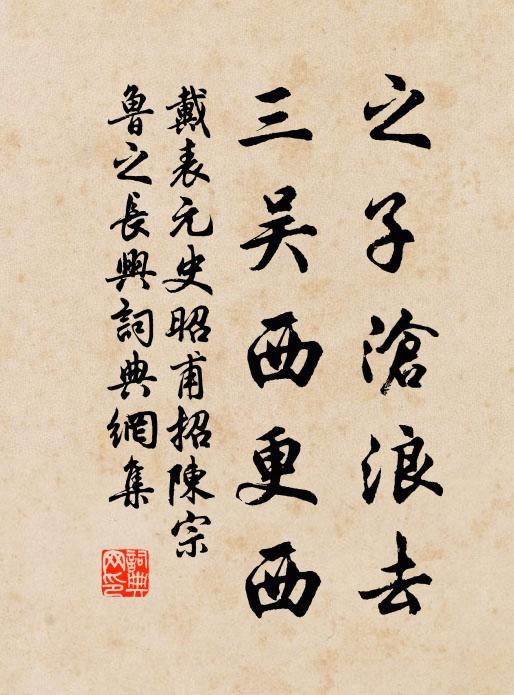 之子滄浪去
三吴西更西
戴表元史昭甫招陳宗
魯之長興詞典網集
詞典
网印